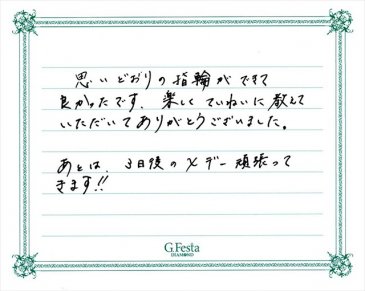 思いどおりの指輪ができて
良かったです、楽しくていねいに教えて
いただいてありがとうございました。
あとは、3日後のXデー頑張って
きます!!
G.Festa
DIAMOND